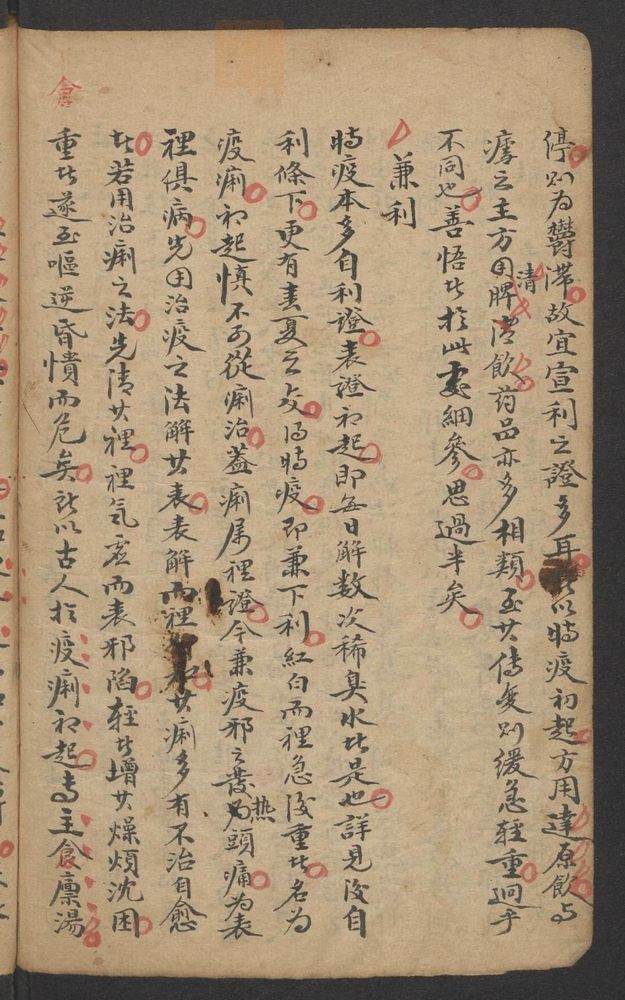 停则为鬱滞故宜宣利之證多耳所以時疫初起方用達原飲与
瘧之主方用脾清飲药品亦多相類至其傳变则缓急轻重迥乎
不同也善悟者於此處細參思過半矣
兼利
時疫本多自利證表證初起即每日解数次稀臭水者是也詳見後自
利條下更有春夏之交得時疫即兼下利紅白而裡急後重者名为
疫痢初起慎不可從痢治葢痢属裡證今兼疫邪之發热頭痛为表
裡俱病先用治疫之法解其表表解而裡自和其痢多有不治自愈
者若用治痢之法先清其裡裡气虚而表邪陷轻者增其燥煩沈困
重者遂至嘔逆昏憒而危矣所以古人於疫痢初起专主倉廪湯
倉